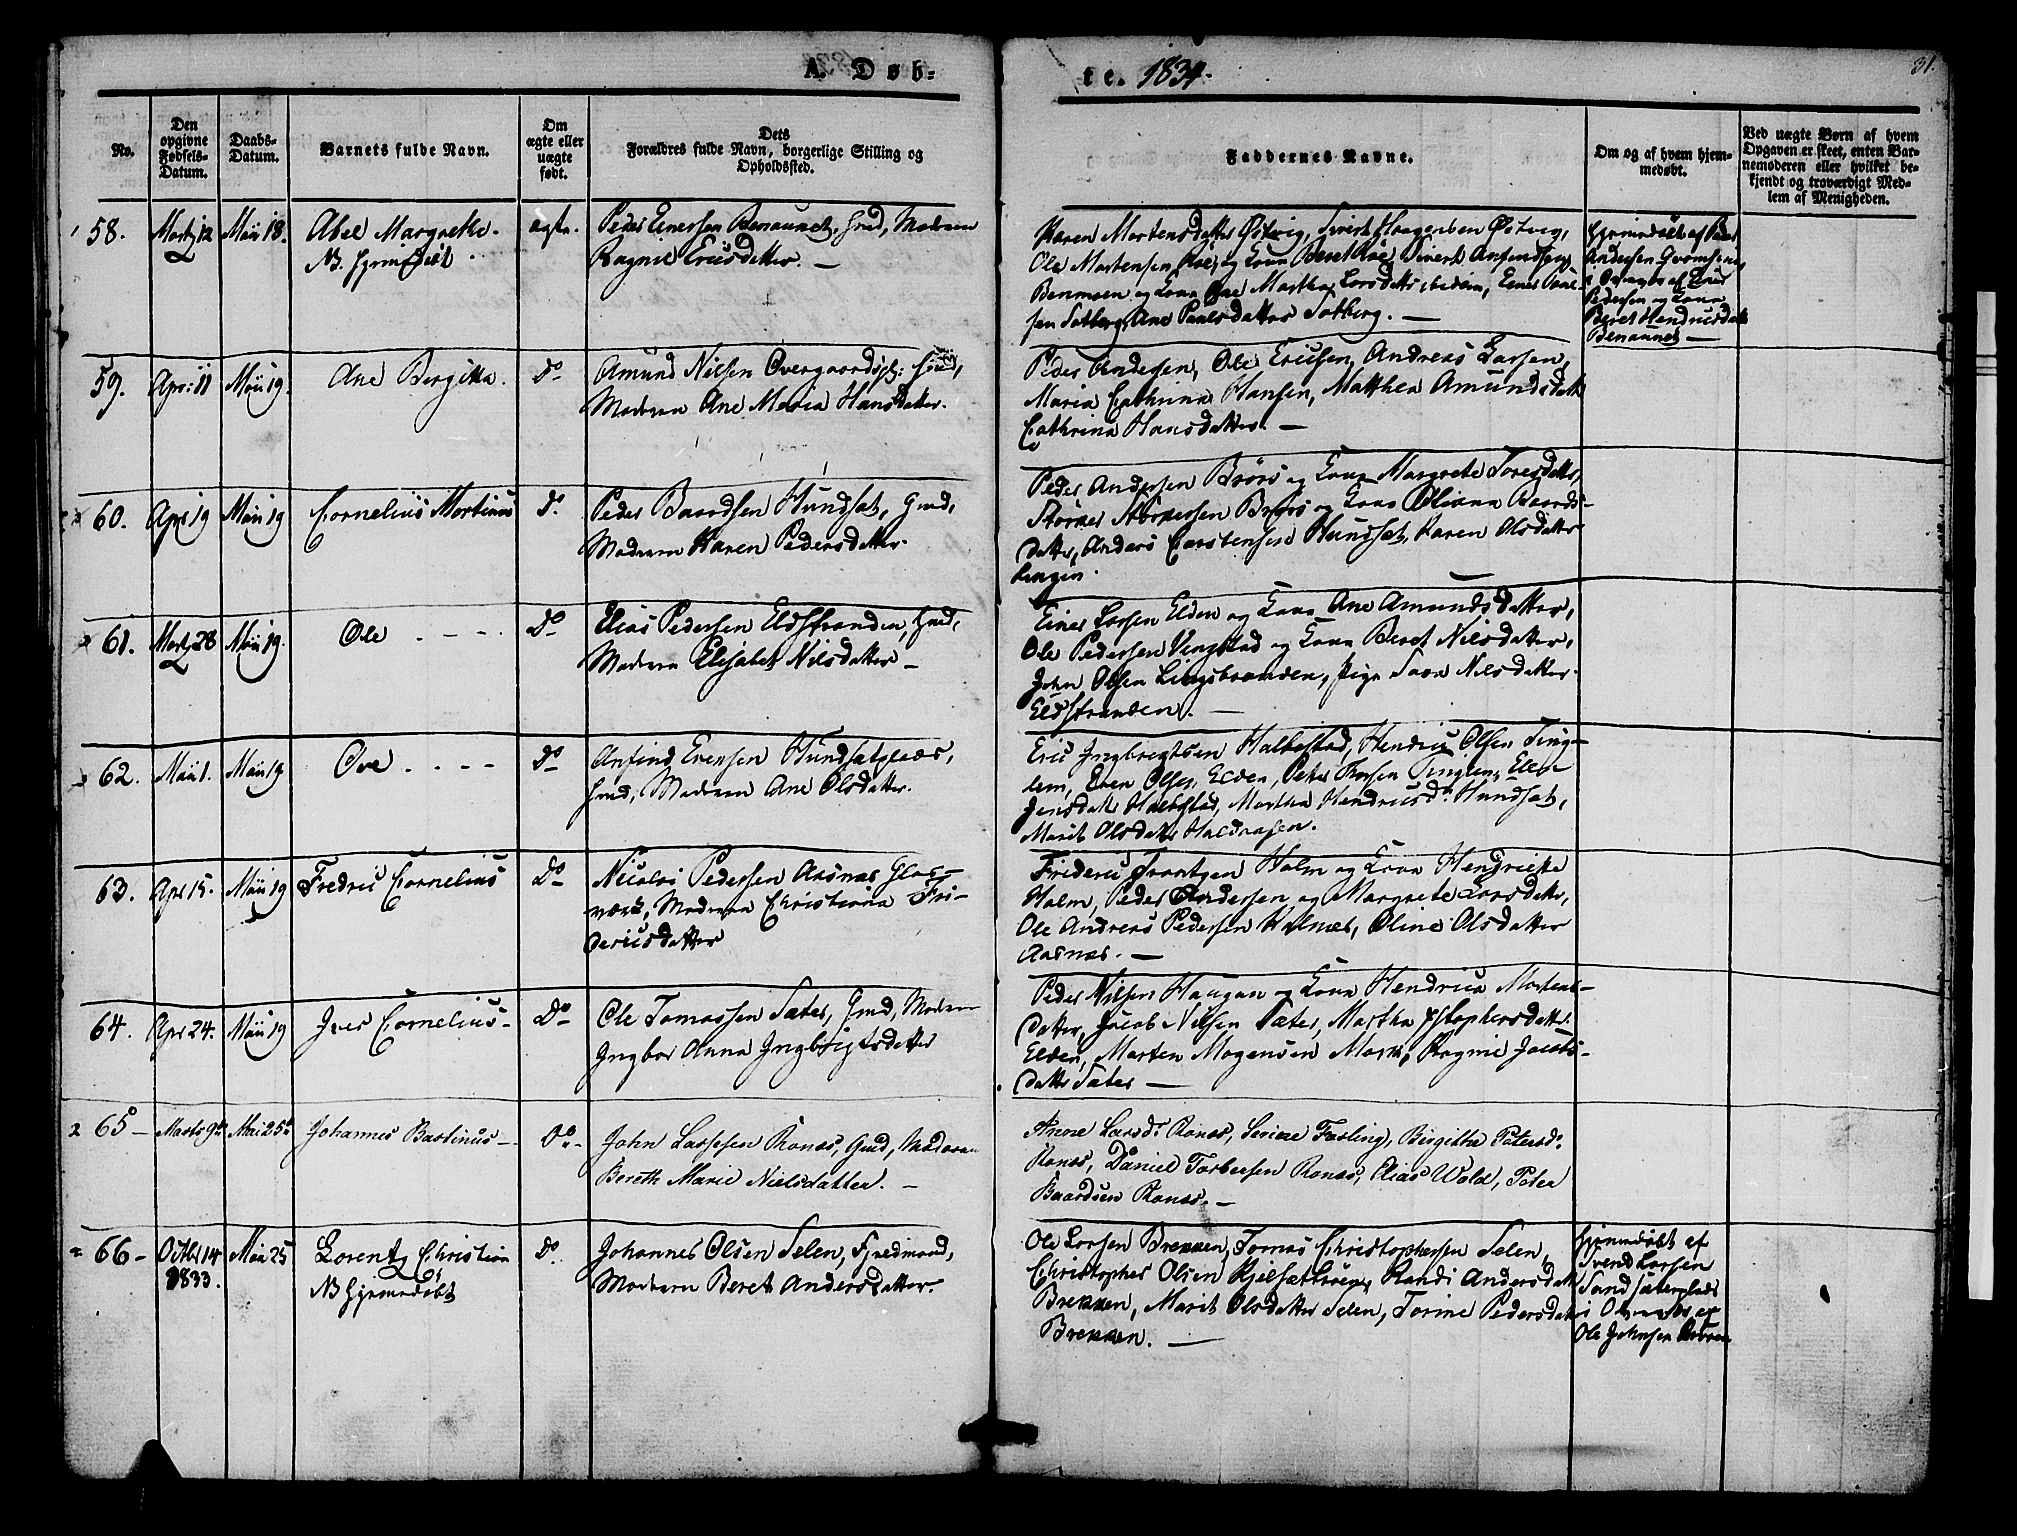 A. Døb-
te. 1834.
31.
No.
Den opgivne Fødsels-Datum.
Daabs-Datum.
Barnets fulde Navn.
Om ægte eller uægte født.
Dets Forældres fulde Navn, borgerlige Stilling og Opholdssted.
Faddernes Navne.
Om og af hvem hjem-medøbt.
Ved uægte Børn af hvem Opgaven er skeet, enten Bar-nemoderen eller hvilket be-kjendt og troværdigt Med-lem af Menigheden.
58. Marts 12 Mäi 18. Abel Margrethe. ægte. Peder Einersen Benaunet, Gmd, Moderen
NB. Hjemdøbt Ragnil Ericsdatter. —
Karen Mortensdatter Østvig, Sivert Haagensen Østvig,
Ole Mortensen Roe, og Kona Beret Roe, Sivert Anfindsen
Benmoen og Kona Ane Martha Larsdatter ibidem, Einer Paul-
sen Solberg, Ane Paulsdatter Solberg. —
Hjemmedøbt af Peder
Andersen
i Overvær af Einer
Pedersen og Kona
Beret Hendricsdatt
Benaunet —
59. Apr: 11 Mäi 19. Ane Bergitta. Do Amund Nilsen Overgaards, Gmd,
Moderen Ane Maria Hansdatter.
Peder Andersen, Ole Ericsen, Andreas Larsen,
Maria Cathrina Hansen, Matthea Amundsdatt
Cathrina Hansdatter. —
60. Apr 19 Mäi 19 Cornelius Mortinus Do Peder Baardsen Hundsat, Gmd,
Moderen Karen Pedersdatter.
Peder Andersen Brørs og Kona Margrete Toresdatter,
Størker Størkersen Brørs og Kona Oliana Baards-
datter, Anders Carstensen Hundsat, Karen Olsdatter
61. Marts 28 Mäi 19. Ole Do Elias Pedersen Eldstranden, Gmd,
Moderen Elisabet Nilsdatter —
Einer Larsen Elden og Kona Ane Amundsdatter,
Ole Pedersen Vengstad og Kona Beret Nilsdatter,
John Olsen Lingsbranden, Pige Sara Nilsdatter
Eldstranden. —
62. Mäi 1. Mäi 19 Ove Do Anfind Evensen Hundsatplads,
Gmd, Moderen Ane Olsdatter.
Eric Ingbrigtsen Halbostad, Hendric Olsen Ting-
lem, Even Olsen Elden, Peter Thorsen Tinglem, Elen
Jensdatt Halbostad, Martha Hendricsd. Hundsat,
Marit Olsdatter Haldaasen.
63. Apr 15. Mäi 19 Fredric Cornelius Do Nicolai Pedersen Aasnæs Glas-
værk, Moderen Christiana Fri-
dericsdatter
Frideric Frantzen Holm og Kona Hendrikke
Holm, Peder Andersen og Margrete Larsdatter,
Ole Andreas Pedersen Holmes, Oline Olsdatter
Aasnæs. —
64. Apr 24. Mäi 19 Iver Cornelius Do Ole Tomassen Sæter, Gmd, Moderen
Ingbor Anna Ingbrigtsdatter
Peder Nilsen Haugan og Kona Hendrica Mortens-
datter, Jacob Nilsen Sæter, Martha Xstophersdatter
Elden, Morten Mogensen Mork, Ragnil Jacobs-
datter Sæter —
65 — Marts 9de Mai 25de Johannes Bastinus — Do John Lassesen Ronæs, Gmd, Moderen
Bereth Marie Nielsdatter. —
Anne Larsdr Ronæs, Serine Færling, Birgithe Petersdr
Ronæs, Daniel Torbersen Ronæs, Elias Wold, Peter
Baardsen Ronæs. —
66 — Octbr 14 1833. Mäi 25 Lorentz Christian Do Johannes Olsen Selen, Fledmand,
NB Hjemmedøbt Moderen Beret Andersdatter.
Ole Larsen Brekken, Tomas Christophersen Selen,
Christopher Olsen Kjelsætrøen, Randi Andersdatt
Brekken, Marit Olsdatter Selen, Torine Pedersdatt
Brekken. —
Hjemmedøbt af
Svend Larsen
Sandsæterplads
i Overvær af
Ole Johnsen